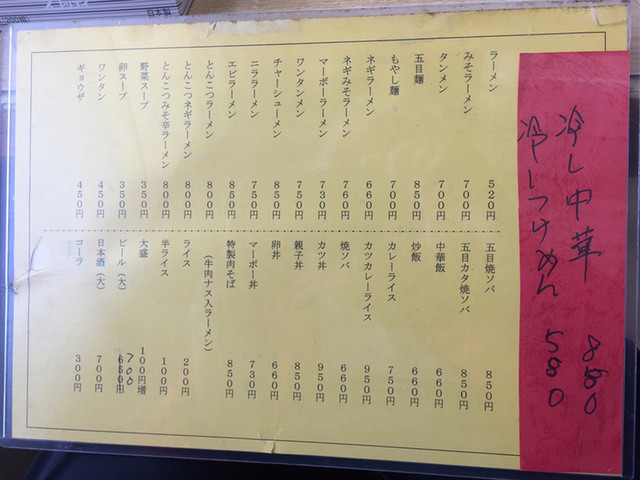 冷し中華 880
冷しつけめん 580
ラーメン 520円
みそラーメン 700円
タンメン 700円
五目麺 850円
もやし麺 700円
ネギラーメン 660円
ネギみそラーメン 760円
マーボーラーメン 730円
ワンタンメン 750円
チャーシューメン 850円
ニララーメン 750円
エビラーメン 850円
とんこつラーメン 800円
とんこつネギラーメン 800円
とんこつみそ辛ラーメン 800円
野菜スープ 350円
卵スープ 350円
ワンタン 450円
ギョウザ 450円
五目焼ソバ 850円
五目カタ焼ソバ 850円
中華飯 660円
炒飯 660円
カレーライス 750円
カツカレーライス 950円
焼ソバ 660円
カツ丼 950円
親子丼 850円
卵丼 660円
マーボー丼 730円
特製肉そば 850円
(牛肉ナス入ラーメン)
ライス 200円
半ライス 100円
大盛 100円増
ビール(大) 650円 700
日本酒(大) 700円
コーラ 300円
日本製